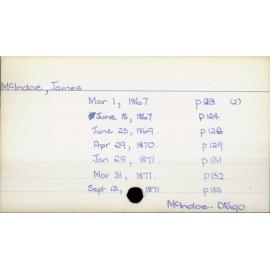 McIndoe, James
Mar 1, 1867 p123 (2)
June 15, 1867 p124
June 23, 1869. p128
Apr 29, 1870. p129
Jan 25, 1871. p131
Mar 31, 1871. p132
Sept 12, 1871 p133
McIndoe - Otago